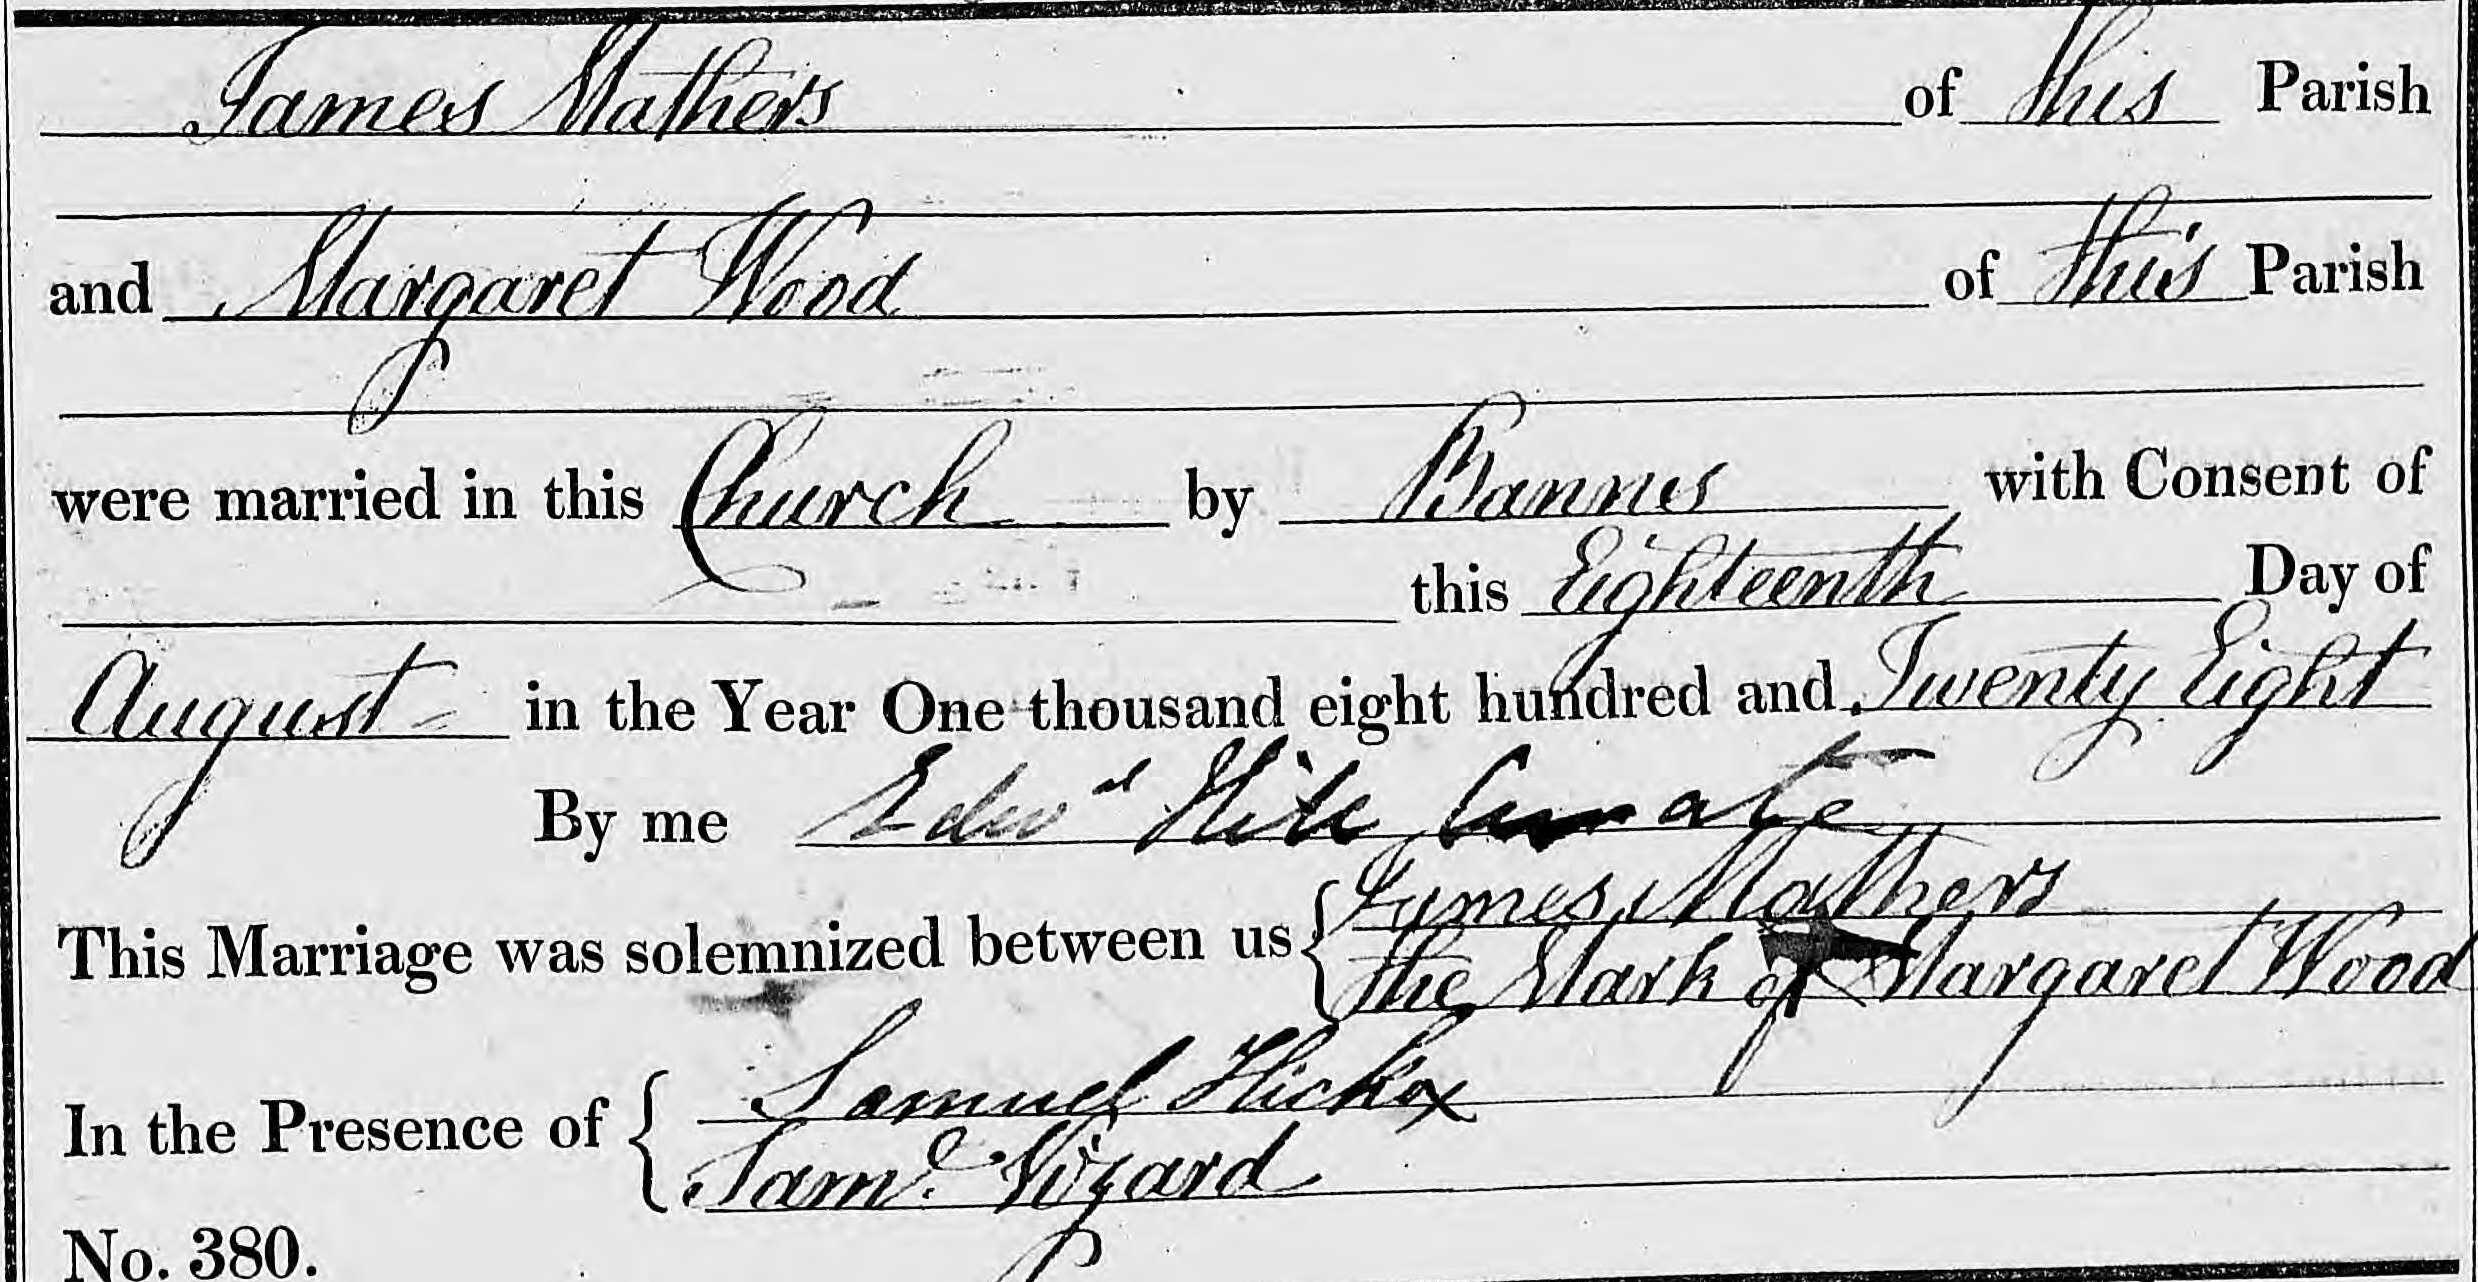 James Mathers of this Parish
and Margaret Wood of this Parish
were married in this Church by Bannes with Consent of
this Eighteenth Day of
August in the Year One thousand eight hundred and Twenty Eight
By me Edwd Curate
This Marriage was solemnized between us { James Mathers
the Mark of X Margaret Wood
In the Presence of { Samuel Hickox
Saml. Vizard
No. 380.